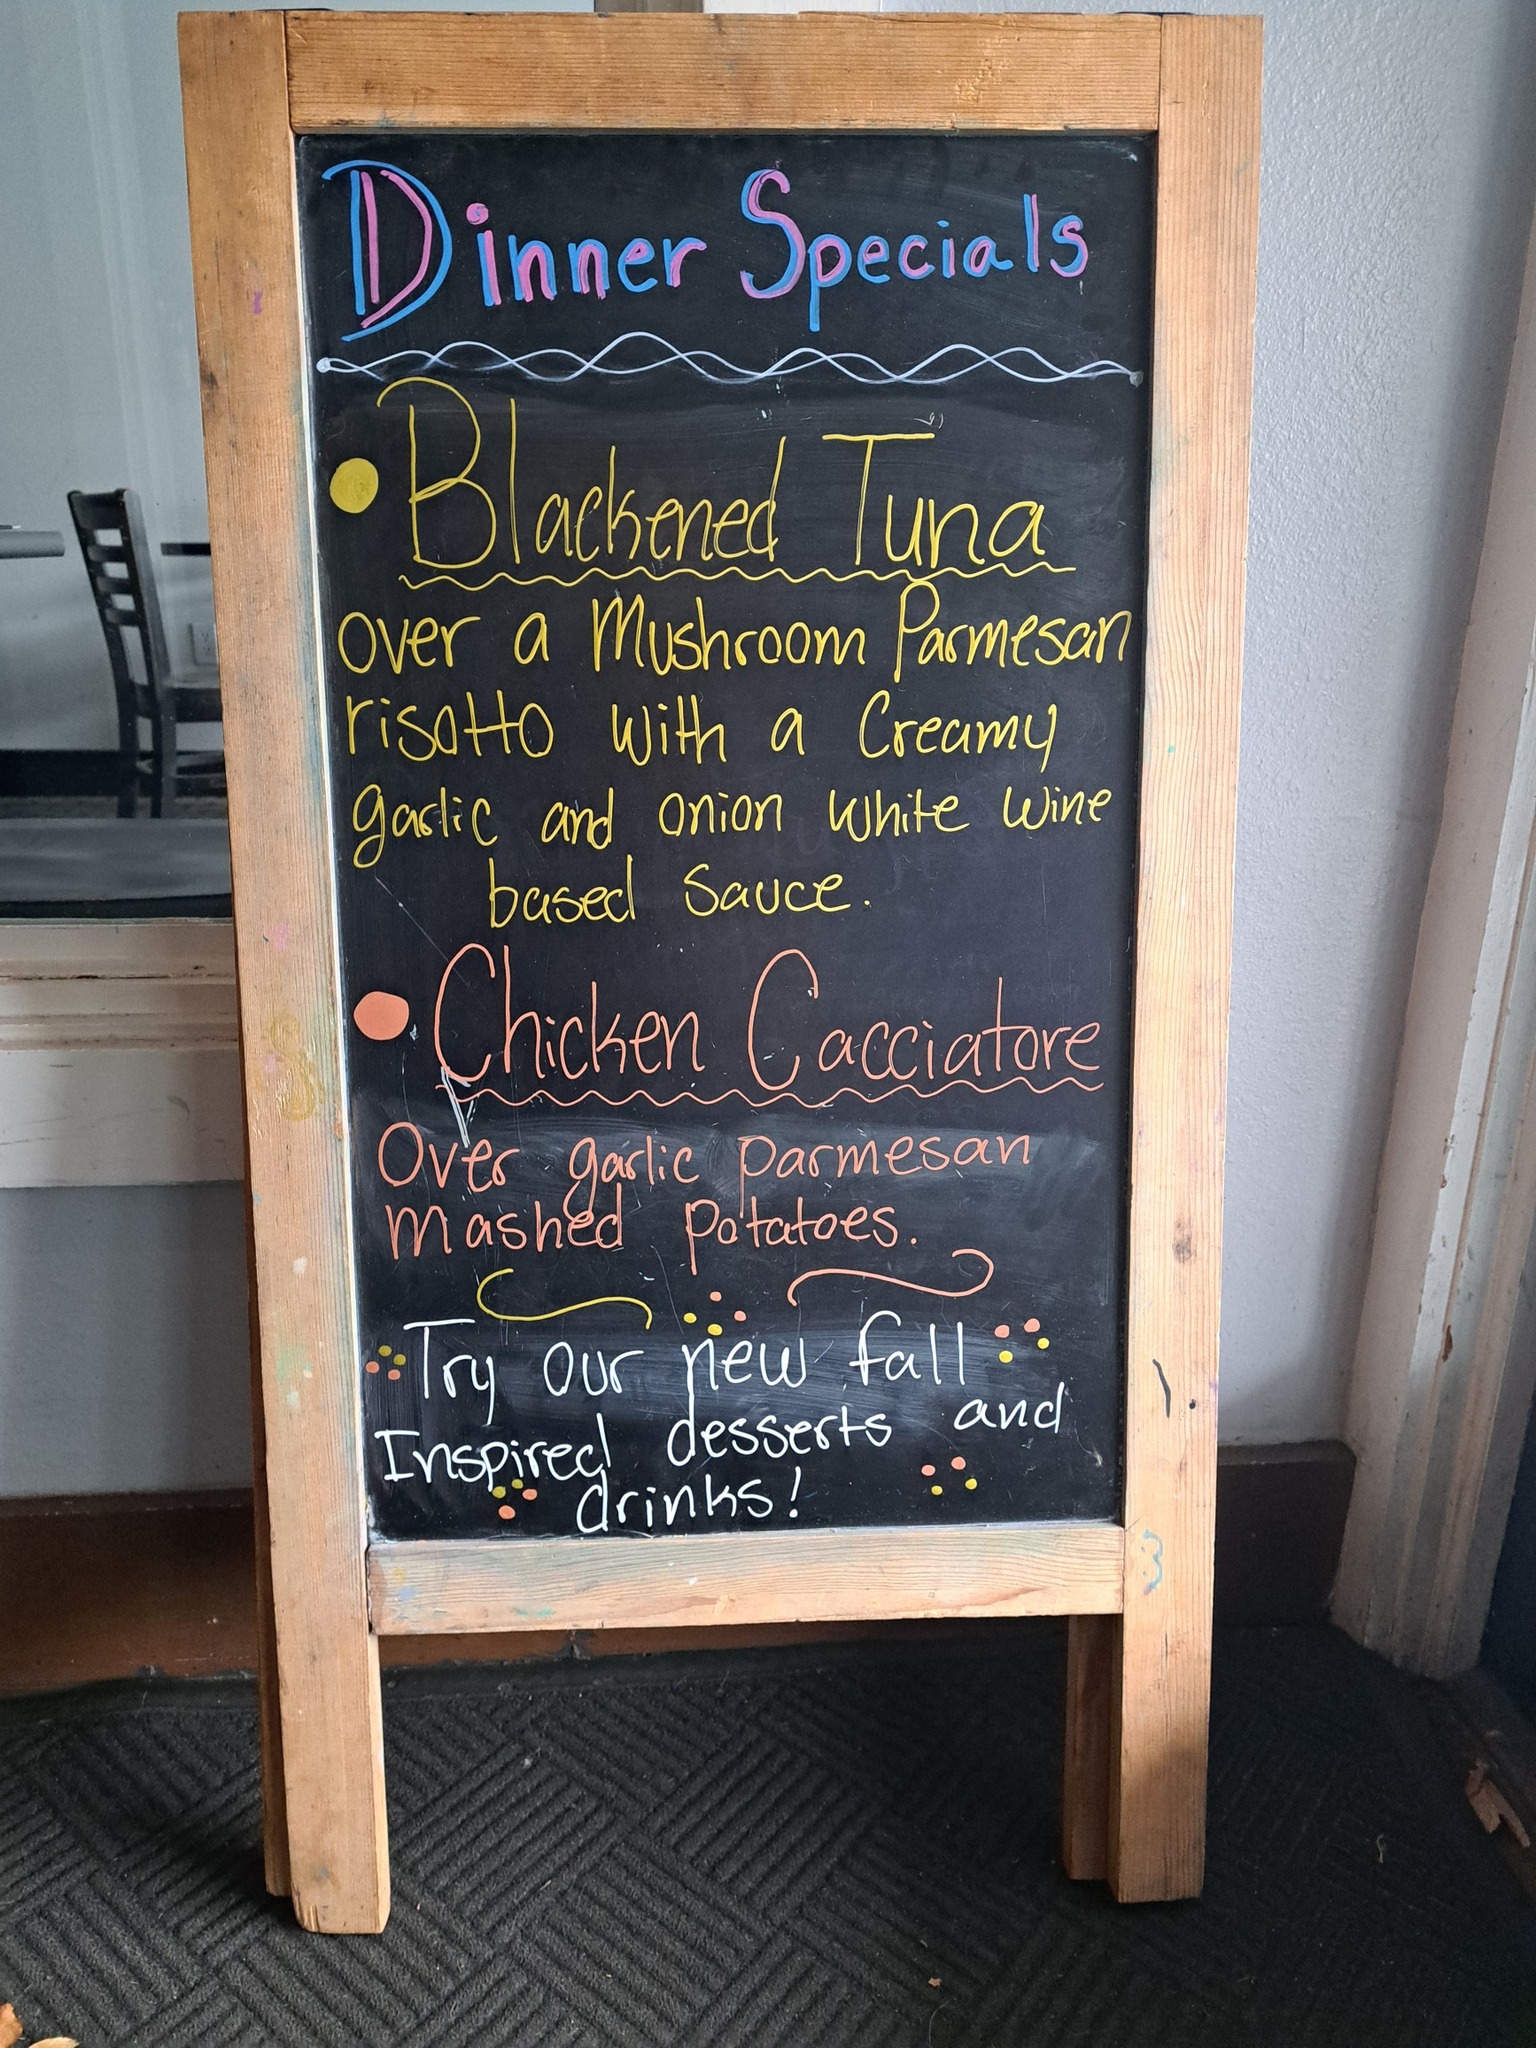 Dinner Specials
Blackened Tuna
over a Mushroom Parmesan
risotto with a Creamy
garlic and onion white wine
based sauce.
Chicken Cacciatore
Over garlic parmesan
mashed potatoes.
Try our new fall
Inspired desserts and
drinks!